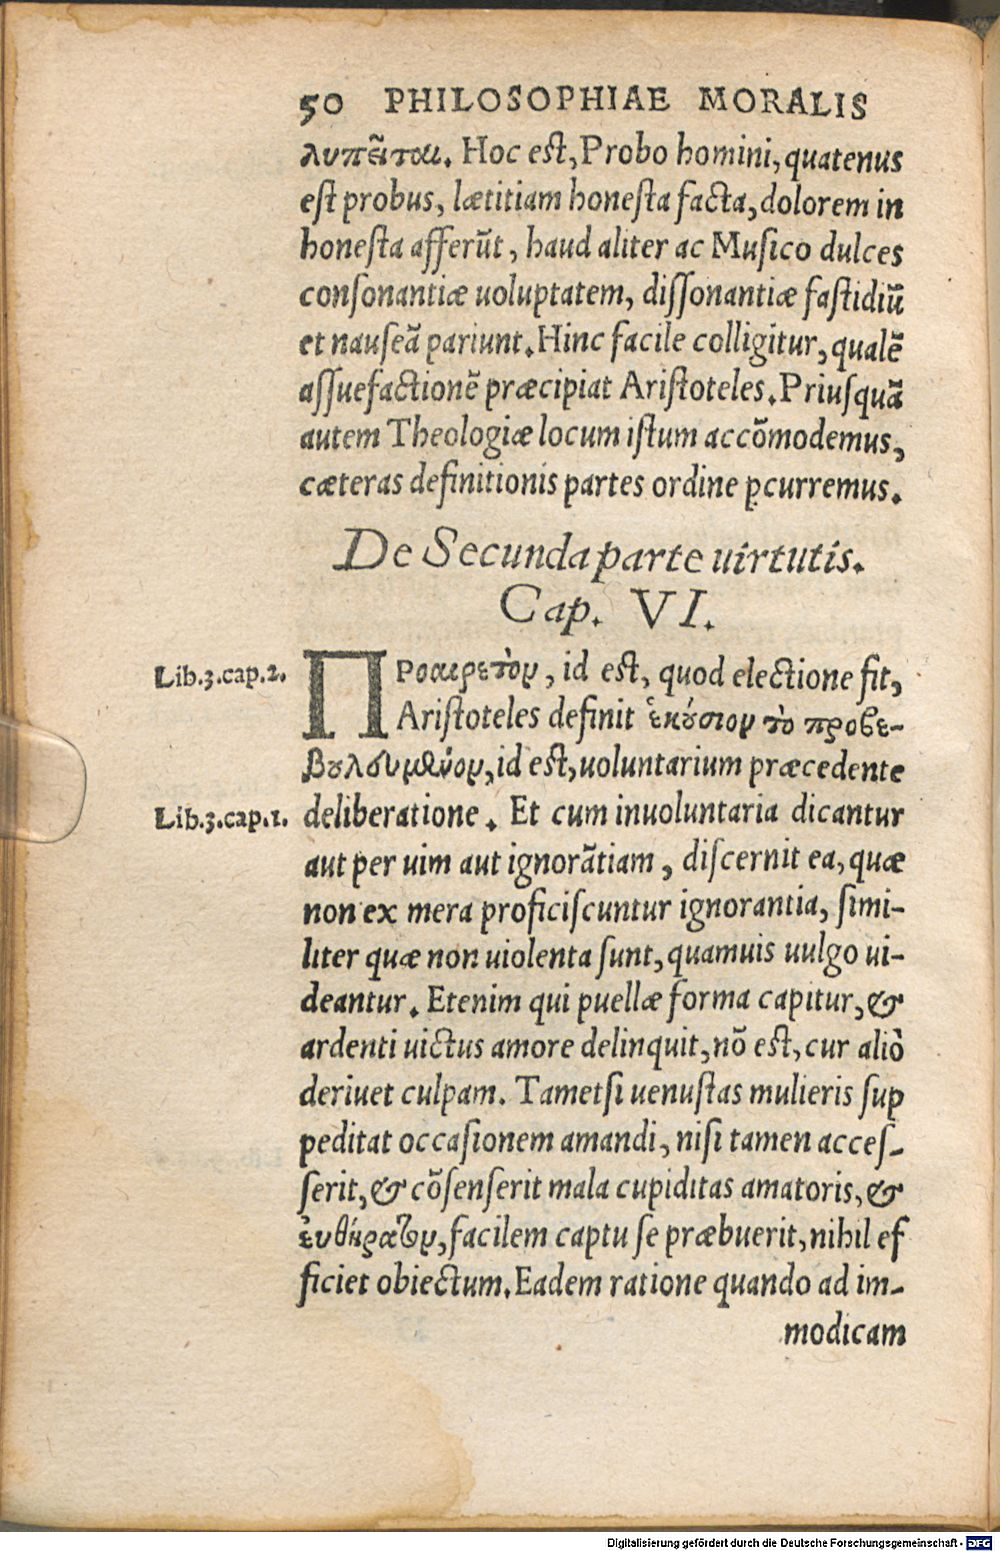 50 PHILOSOPHIAE MORALIS
λυπεῖται. Hoc est, Probo homini, quatenus
est probus, lætitiam honesta facta, dolorem in
honesta afferūt, haud aliter ac Musico dulces
consonantiæ uoluptatem, dissonantiæ fastidiū
et nauseā pariunt. Hinc facile colligitur, qualē
assuefactionē præcipiat Aristoteles. Priusquā
autem Theologiæ locum istum accōmodemus,
cæteras definitionis partes ordine ꝑcurremus.
De Secunda parte uirtutis.
Cap. VI.
Lib.3.cap.2.
ΠΡοαιρετὸν, id est, quod electione fit,
Aristoteles definit ἑκούσιον τὸ προβε-
βουλευμένον, id est, uoluntarium præcedente
Lib.3.cap.1.
deliberatione. Et cum inuoluntaria dicantur
aut per uim aut ignorātiam, discernit ea, quæ
non ex mera proficiscuntur ignorantia, simi-
liter quæ non uiolenta sunt, quamuis uulgo ui-
deantur. Etenim qui puellæ forma capitur, &
ardenti uictus amore delinquit, nō est, cur aliò
deriuet culpam. Tametsi uenustas mulieris sup
peditat occasionem amandi, nisi tamen acces-
serit, & cōsenserit mala cupiditas amatoris, &
εὐθήρατον, facilem captu se præbuerit, nihil ef
ficiet obiectum. Eadem ratione quando ad im-
modicam
Digitalisierung gefördert durch die Deutsche Forschungsgemeinschaft - DFG